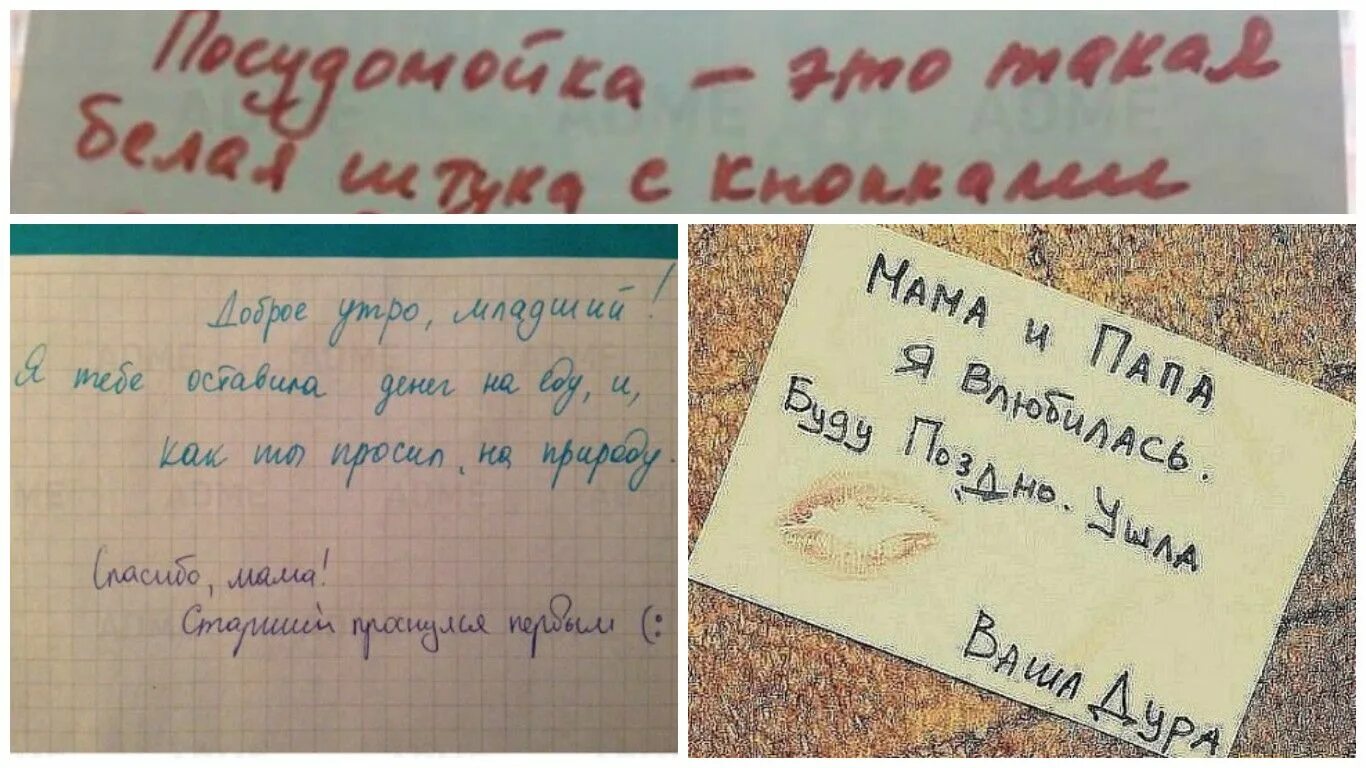 Посудомойка - это такая
белая штука с кнопками
Доброе утро, младший!
Я тебе оставила денег на еду, и,
как ты просил, на природу.
Спасибо, мама!
Старший проснулся первым (:
Мама и Папа
Я Влюбилась.
Буду Поздно. Ушла
Ваша Дура